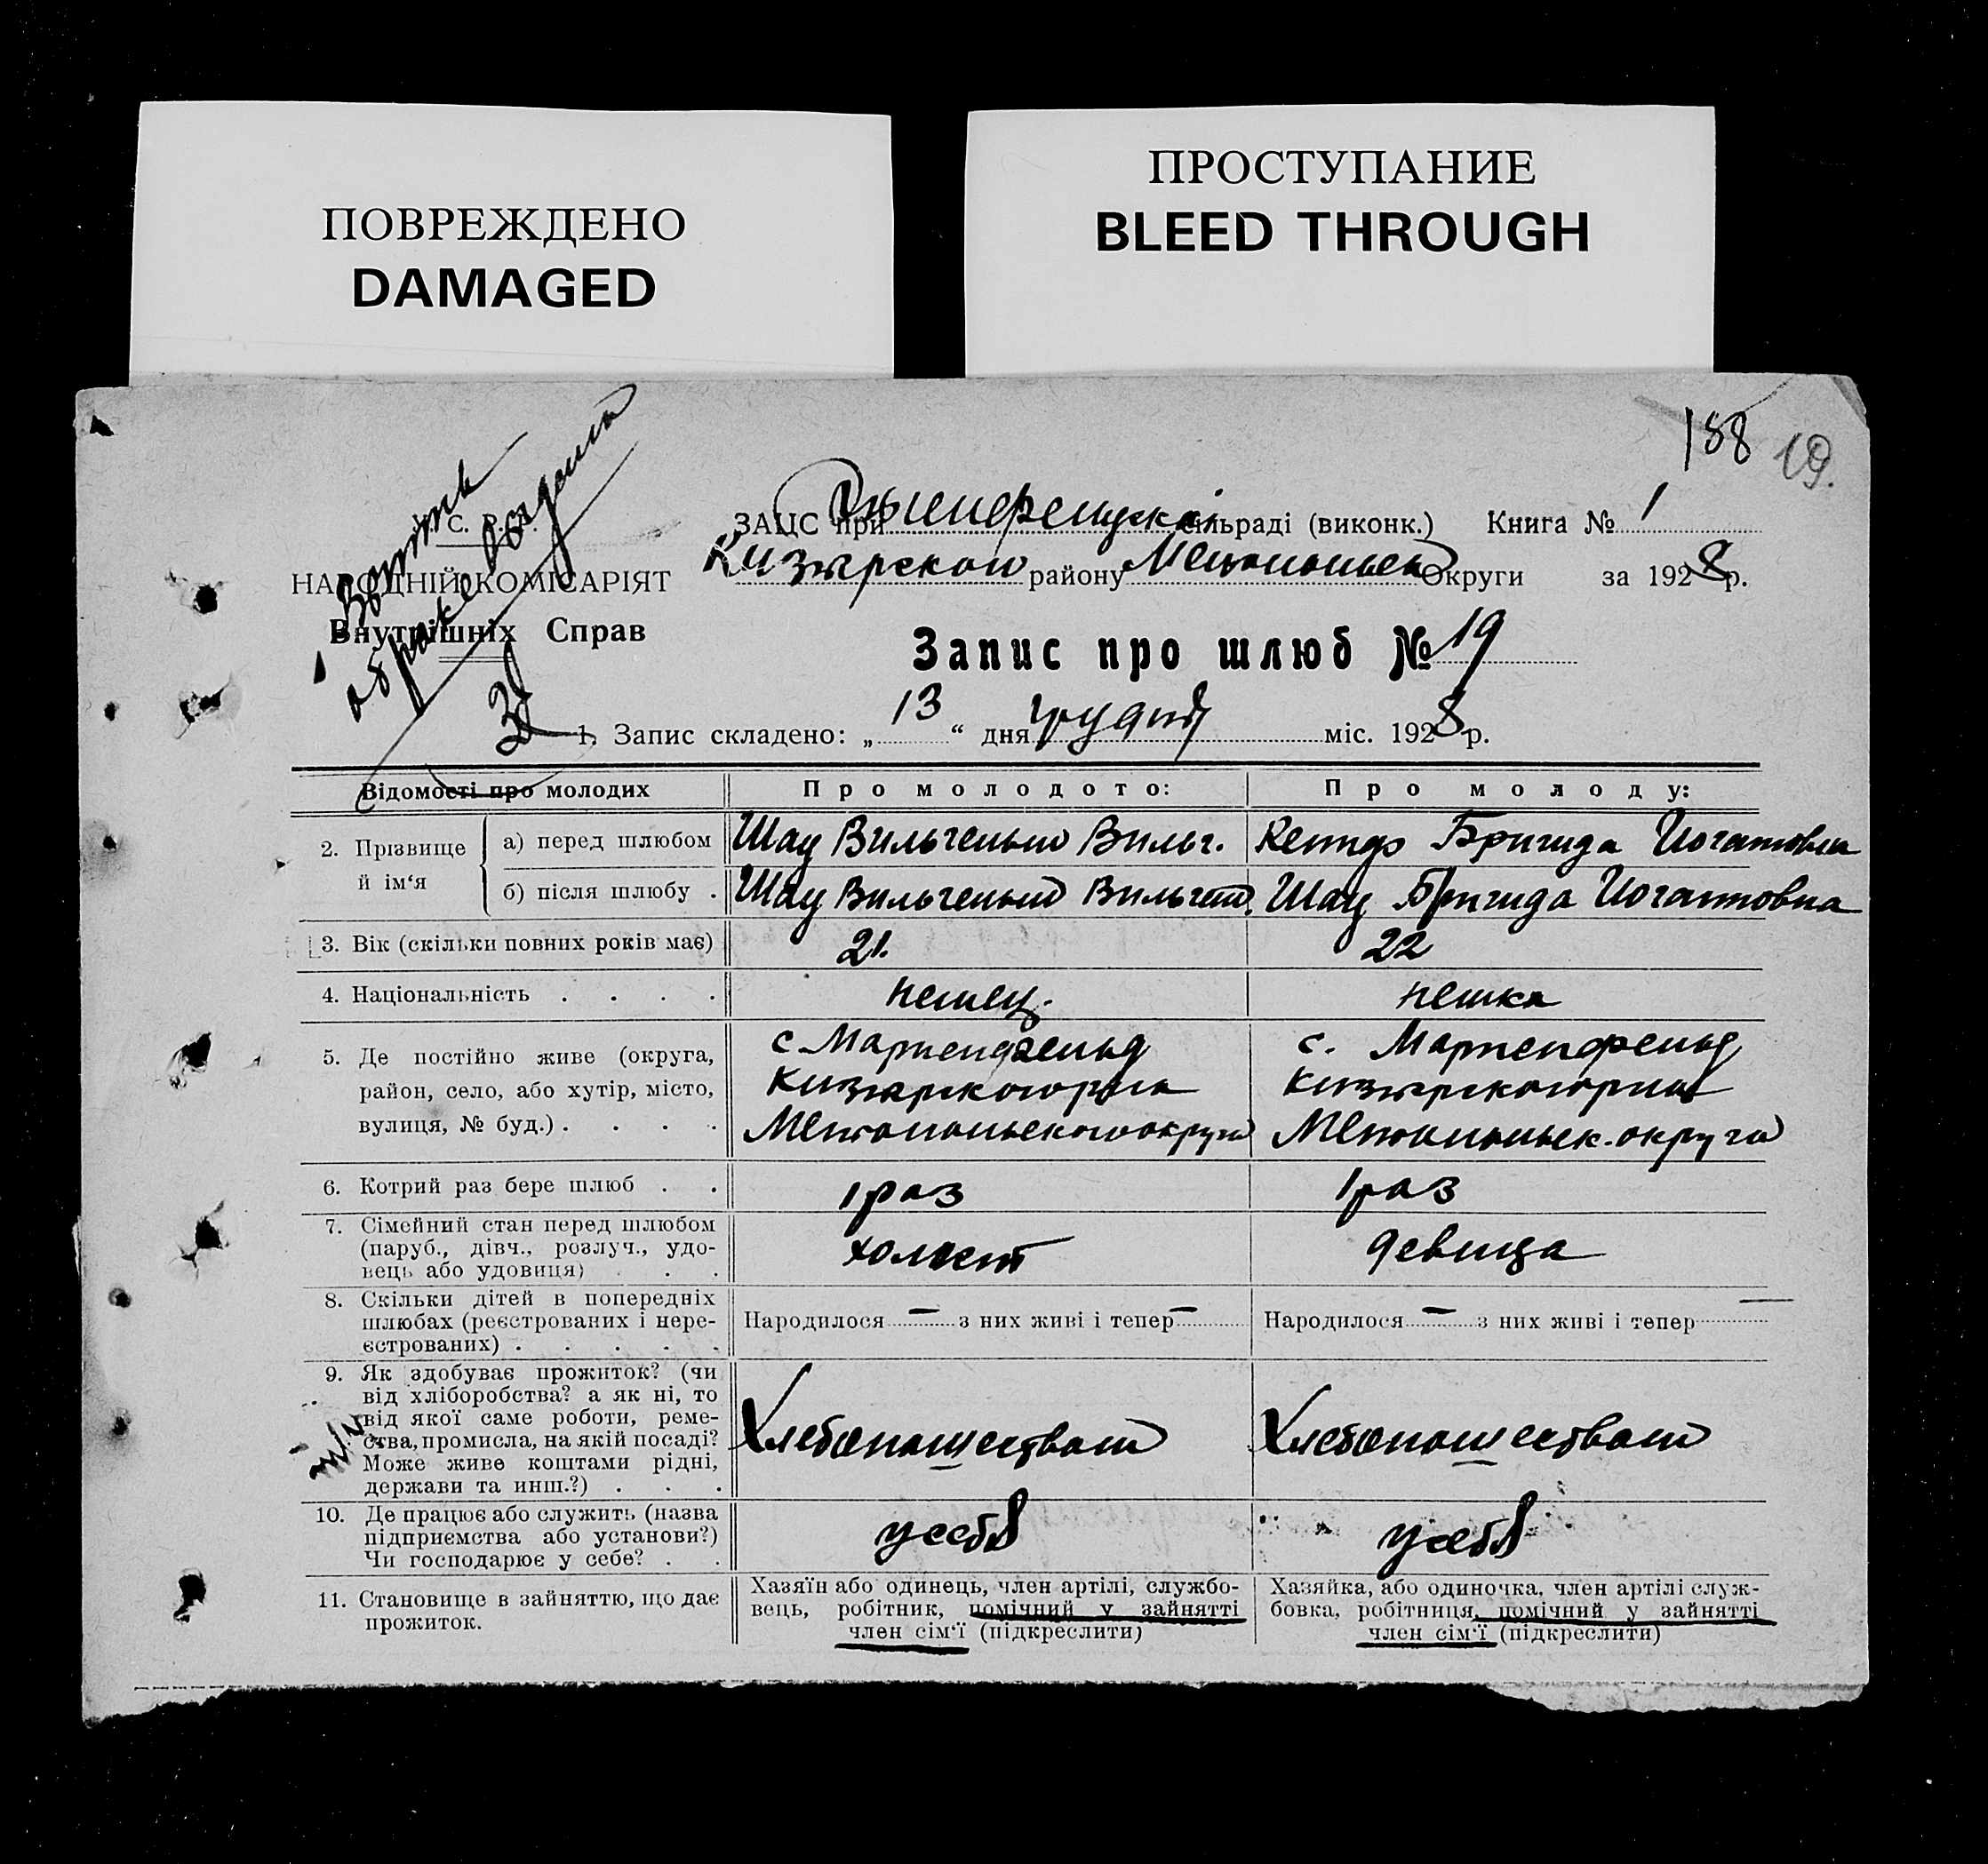 ПОВРЕЖДЕНО
DAMAGED
ПРОСТУПАНИЕ
BLEED THROUGH
188 19.
С. Р.
НАРОДНІЙ КОМІСАРІЯТ
Внутрішніх Справ
о браке
ЗАЦС при сільраді (виконк.) Книга № 1
району округи за 1928 р.
Запис про шлюб № 19
1. Запис складено: „13“ дня грудня міс. 1928 р.
Відомості про молодих Про молодого: Про молоду:
2. Прізвище й ім‘я
а) перед шлюбом Шац Вильгельм Вильг. Бригида Иогановна
б) після шлюбу . Шац Вильгельм Вильгем. Шац Бригида Иогановна
3. Вік (скільки повних років має) 21. 22
4. Національність . . . . немец. немка
5. Де постійно живе (округа, с. Мариенфельд с. Мариенфельд
район, село, або хутір, місто,
вулиця, № буд.) . . . . округа
6. Котрий раз бере шлюб . . 1 раз 1 раз
7. Сімейний стан перед шлюбом
(паруб., дівч., розлуч., удо- холост девица
вець або удовиця) . . .
8. Скільки дітей в попередніх
шлюбах (реєстрованих і нере- Народилося — з них живі і тепер — Народилося — з них живі і тепер —
єстрованих) . . . . .
9. Як здобуває прожиток? (чи
від хліборобства? а як ні, то
від якої саме роботи, реме- Хлебопашеством Хлебопашеством
ства, промисла, на якій посаді?
Може живе коштами рідні,
держави та инш.?) . . .
10. Де працює або служить (назва
підприємства або установи?) у себя у себя
Чи господарює у себе? . .
11. Становище в зайняттю, що дає Хазяїн або одинець, член артілі, службо- Хазяйка, або одиночка, член артілі служ-
прожиток. вець, робітник, помічний у зайнятті бовка, робітниця, помічний у зайнятті
член сім‘ї (підкреслити) член сім‘ї (підкреслити)